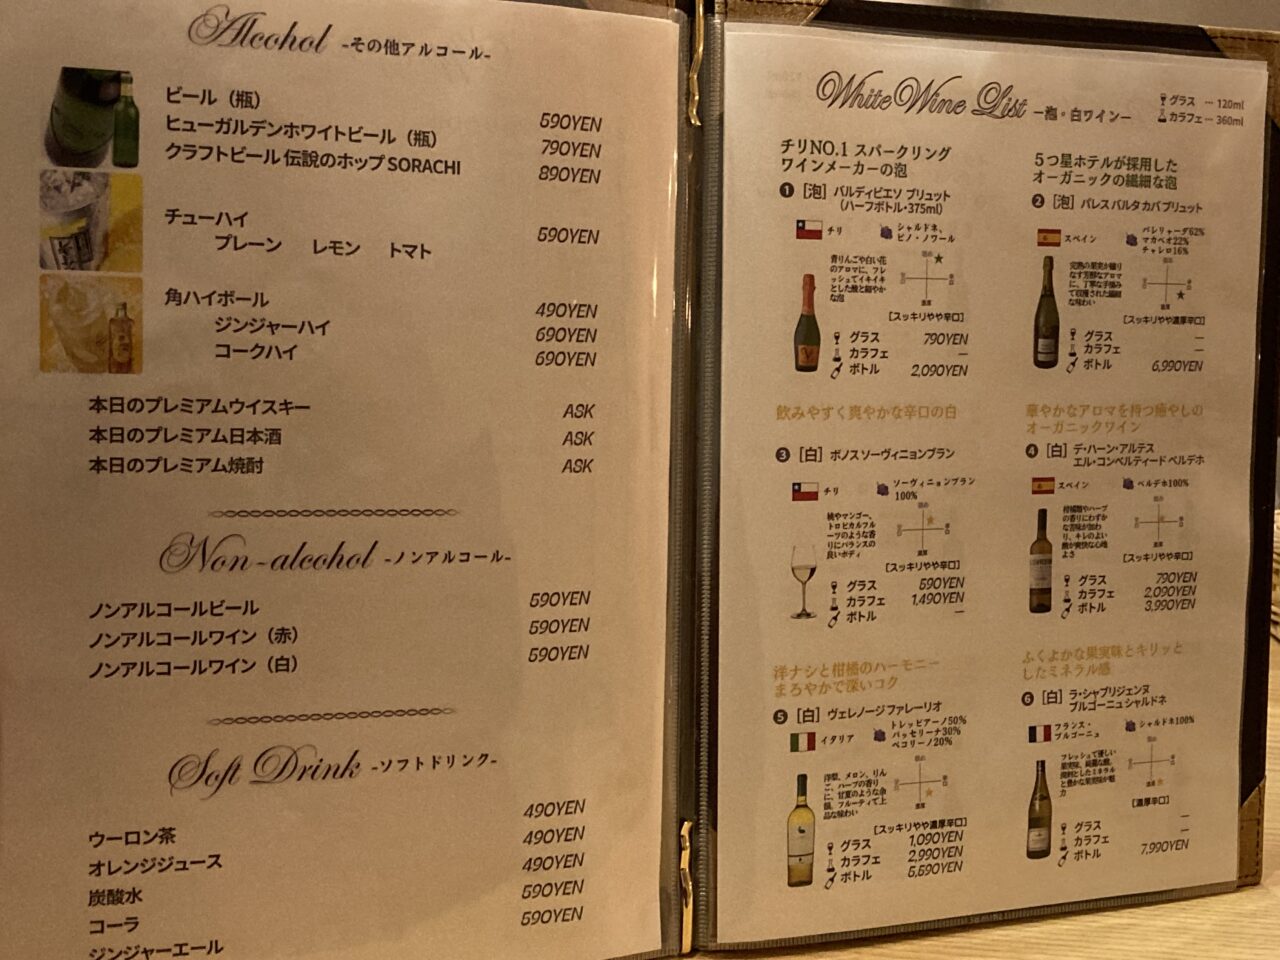 Alcohol -その他アルコール-
ビール（瓶） 590YEN
ヒューガルデンホワイトビール（瓶） 790YEN
クラフトビール 伝説のホップ SORACHI 890YEN
チューハイ 590YEN
プレーン レモン トマト
角ハイボール 490YEN
ジンジャーハイ 690YEN
コークハイ 690YEN
本日のプレミアムウイスキー ASK
本日のプレミアム日本酒 ASK
本日のプレミアム焼酎 ASK
Non-alcohol -ノンアルコール-
ノンアルコールビール 590YEN
ノンアルコールワイン（赤） 590YEN
ノンアルコールワイン（白） 590YEN
Soft Drink -ソフトドリンク-
ウーロン茶 490YEN
オレンジジュース 490YEN
炭酸水 490YEN
コーラ 590YEN
ジンジャーエール 590YEN
White Wine List －泡・白ワイン－
グラス … 120ml
カラフェ … 360ml
チリNO.1 スパークリング
ワインメーカーの泡
❶［泡］バルディビエソ ブリュット
（ハーフボトル・375ml）
チリ
シャルドネ、
ピノ・ノワール
青りんごや白い花
のアロマに、フレ
ッシュでイキイキ
とした酸と細やか
な泡
［スッキリやや辛口］
グラス 790YEN
カラフェ －
ボトル 2,090YEN
5つ星ホテルが採用した
オーガニックの繊細な泡
❷［泡］パレス バルタ カバ ブリュット
スペイン
パレリャーダ62%
マカベオ22%
チャレロ16%
完熟の果実が織り
なす芳醇なアロマ
に、丁寧な手摘み
で収穫された繊細
な味わい
［スッキリやや濃厚辛口］
グラス －
カラフェ －
ボトル 6,990YEN
飲みやすく爽やかな辛口の白
❸［白］ボノス ソーヴィニョンブラン
チリ
ソーヴィニョンブラン
100%
桃やマンゴー、
トロピカルフル
ーツのような香
りにバランスの
良いボディ
［スッキリやや辛口］
グラス 590YEN
カラフェ 1,490YEN
ボトル －
華やかなアロマを持つ癒やしの
オーガニックワイン
❹［白］デ・ハーン・アルテス
エル・コンベルティード ベルデホ
スペイン
ベルデホ100%
柑橘類やハーブ
の香りにわずか
な苦味が加わ
り、キレのよい
酸が爽快な心地
よさ
［スッキリやや辛口］
グラス 790YEN
カラフェ 2,090YEN
ボトル 3,990YEN
洋ナシと柑橘のハーモニー
まろやかで深いコク
❺［白］ヴェレノージ ファレーリオ
イタリア
トレッビアーノ50%
パッセリーナ30%
ペコリーノ20%
洋梨、メロン、りん
ご、ハーブの香り
に、甘夏のような余
韻、フルーティで上
品な味わい
［スッキリやや濃厚辛口］
グラス 1,090YEN
カラフェ 2,990YEN
ボトル 5,590YEN
ふくよかな果実味とキリッと
したミネラル感
❻［白］ラ・シャブリジェンヌ
ブルゴーニュ シャルドネ
フランス・
ブルゴーニュ
シャルドネ100%
フレッシュで優しい
果実味、綺麗な酸、
と豊かな果実味が魅
力
［濃厚辛口］
グラス －
カラフェ －
ボトル 7,990YEN